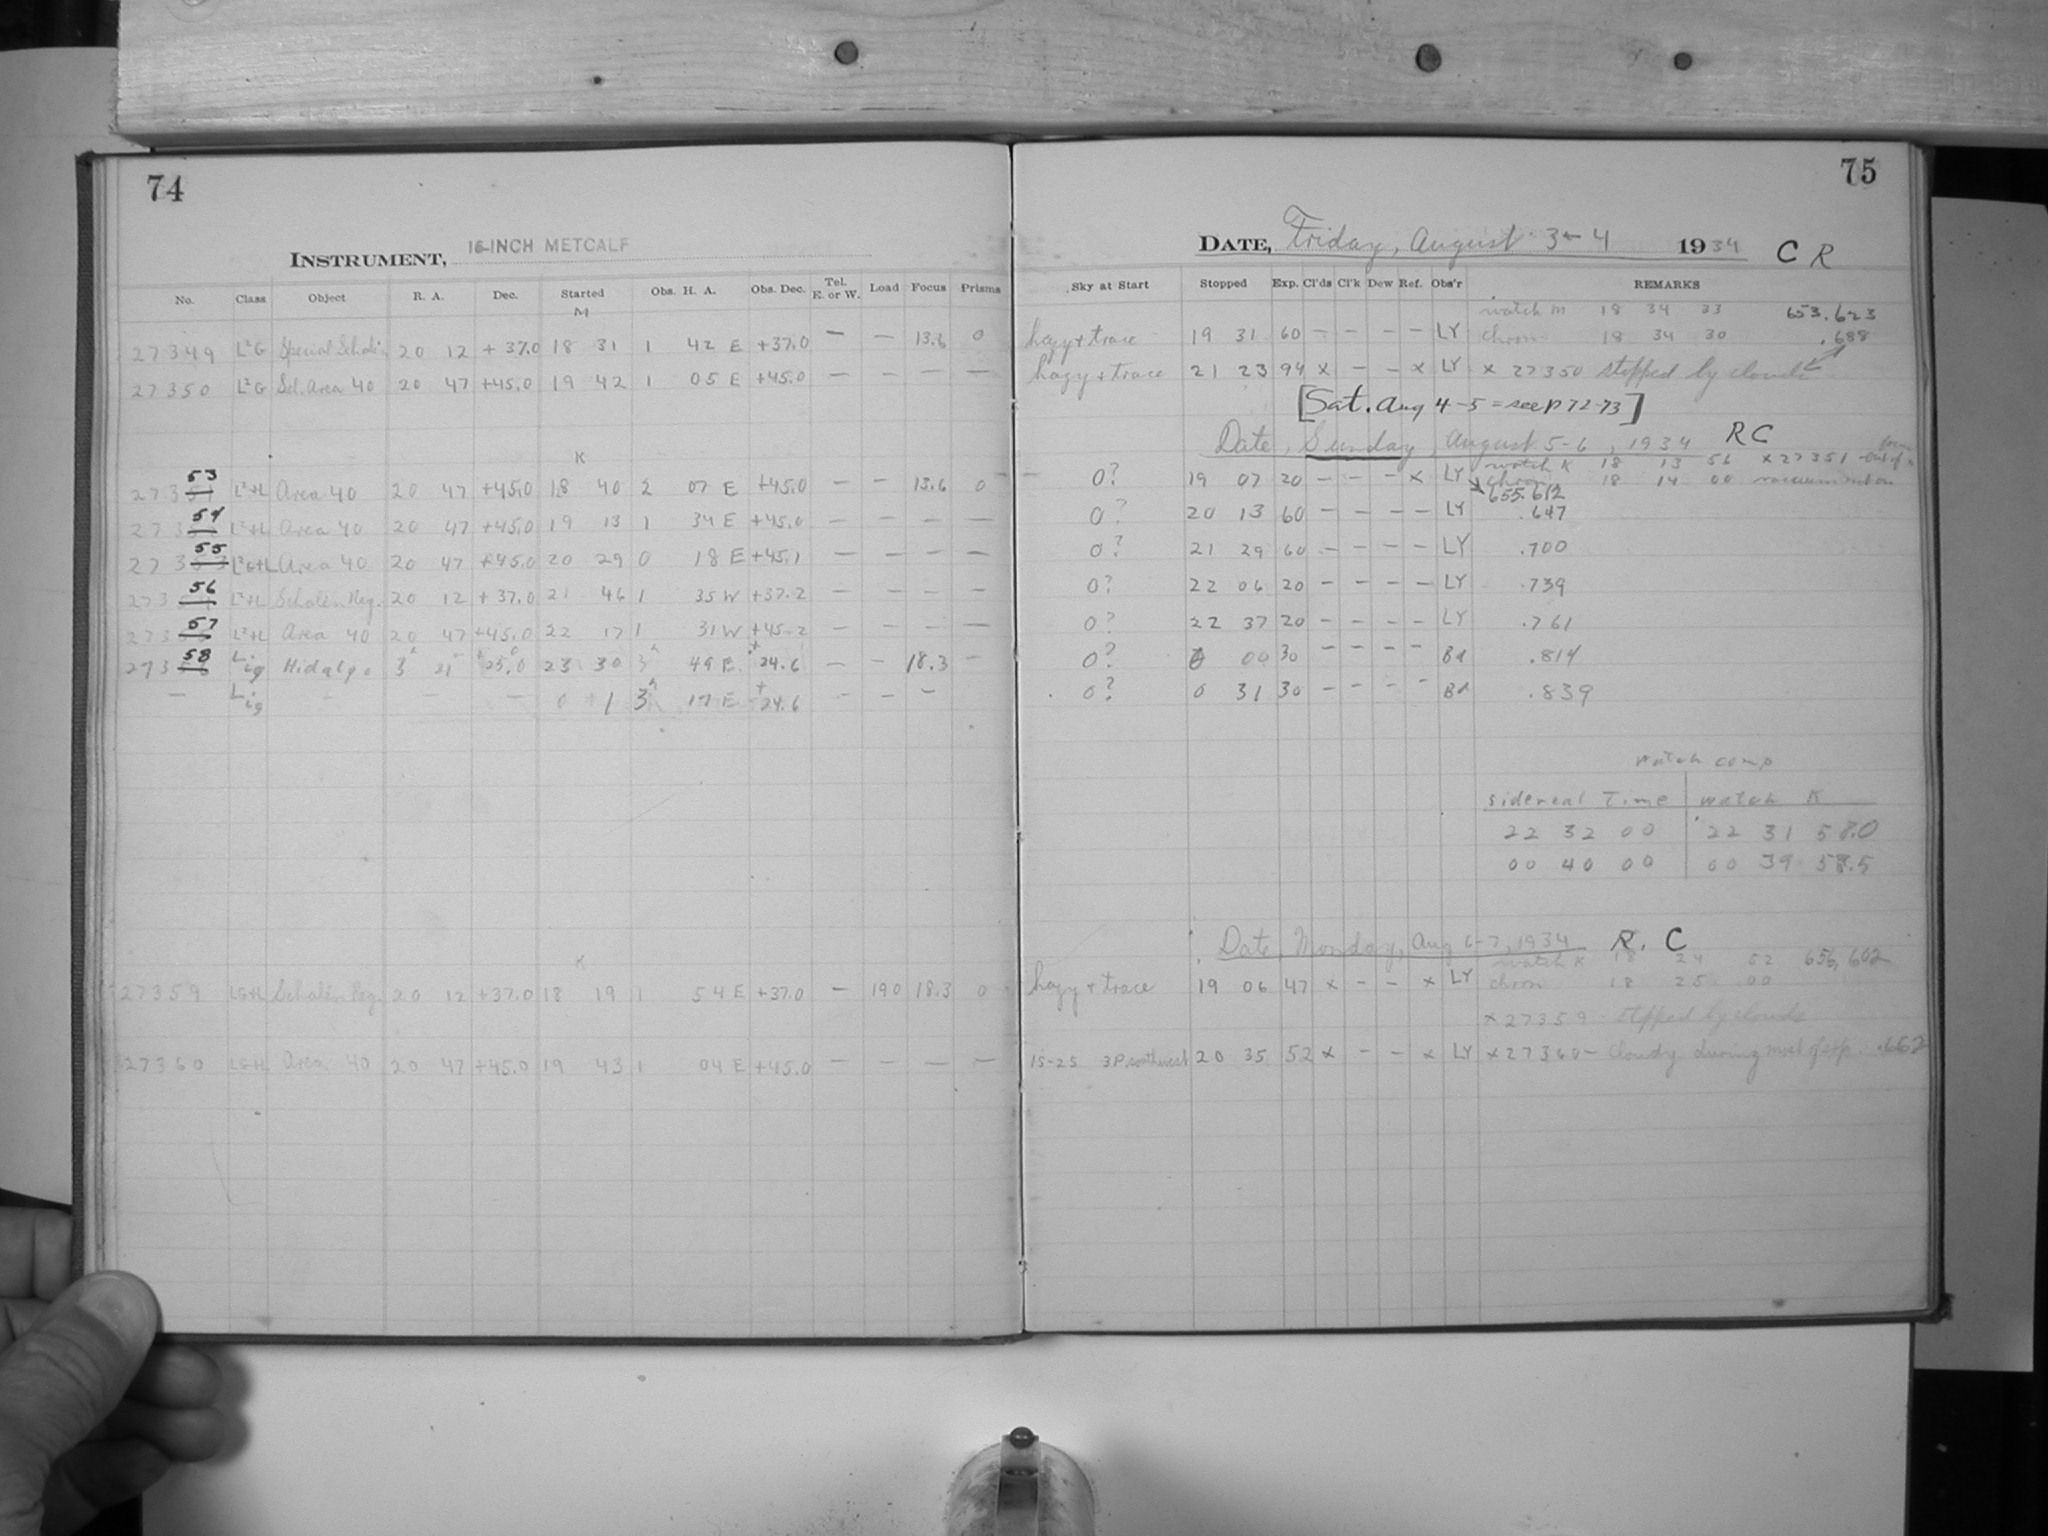 74
INSTRUMENT, 16-INCH METCALF
No. Class Object R. A. Dec. Started Obs. H. A. Obs. Dec. Tel. E. or W. Load Focus Prisms
M
27349 L²G Special Schalén 20 12 + 37.0 18 31 1 42 E +37.0 — — 13.6 0
27350 L²G Sel. Area 40 20 47 +45.0 19 42 1 05 E +45.0 — — — —
K
273 53 L²+L Area 40 20 47 +45.0 18 40 2 07 E +45.0 — — 13.6 0
273 54 L²+L Area 40 20 47 +45.0 19 13 1 34 E +45.0 — — — —
273 55 L²G+L Area 40 20 47 +45.0 20 29 0 18 E +45.1 — — — —
273 56 L²+L Schalén Reg. 20 12 + 37.0 21 46 1 35 W +37.2 — — — —
273 57 L²+L Area 40 20 47 +45.0 22 17 1 31 W +45.2 — — — —
273 58 Lig Hidalgo 3h 21 +25.0 23 30 3h 49 E +24.6 — — 18.3 —
— Lig - — — 0 1 3h 17 E +24.6 — — —
K
27359 LG+L Schalén Reg. 20 12 +37.0 18 19 1 54 E +37.0 — 190 18.3 0
27360 LG+L Area 40 20 47 +45.0 19 43 1 04 E +45.0 — — — —
75
DATE, Friday, August 3-4 1934 C R
Sky at Start Stopped Exp. Cl'ds Cl'k Dew Ref. Obs'r REMARKS
watch M 18 34 33 653.623
hazy + trace 19 31 60 - - - - LY chron 18 34 30 .688
hazy + trace 21 23 94 x - - x LY x 27350 stopped by clouds
[Sat. Aug 4-5 = see p 72-73]
Date, Sunday, August 5-6, 1934 R C
watch K 18 13 56 x 27351 - out of
0? 19 07 20 - - - x LY chron 18 14 00 vacuum not on
655.612
0? 20 13 60 - - - - LY .647
0? 21 29 60 - - - - LY .700
0? 22 06 20 - - - - LY .739
0? 22 37 20 - - - - LY .761
0? 0 00 30 - - - - Bd .814
0? 0 31 30 - - - - Bd .839
watch comp
sidereal Time watch K
22 32 00 22 31 58.0
00 40 00 00 39 58.5
Date, Monday, Aug 6-7, 1934 R. C
watch K 18 24 52 656.602
hazy + trace 19 06 47 x - - x LY chron 18 25 00
x 27359 stopped by clouds
15-25 3P. southwest 20 35 52 x - - x LY x 27360 - cloudy during most of exp. .662